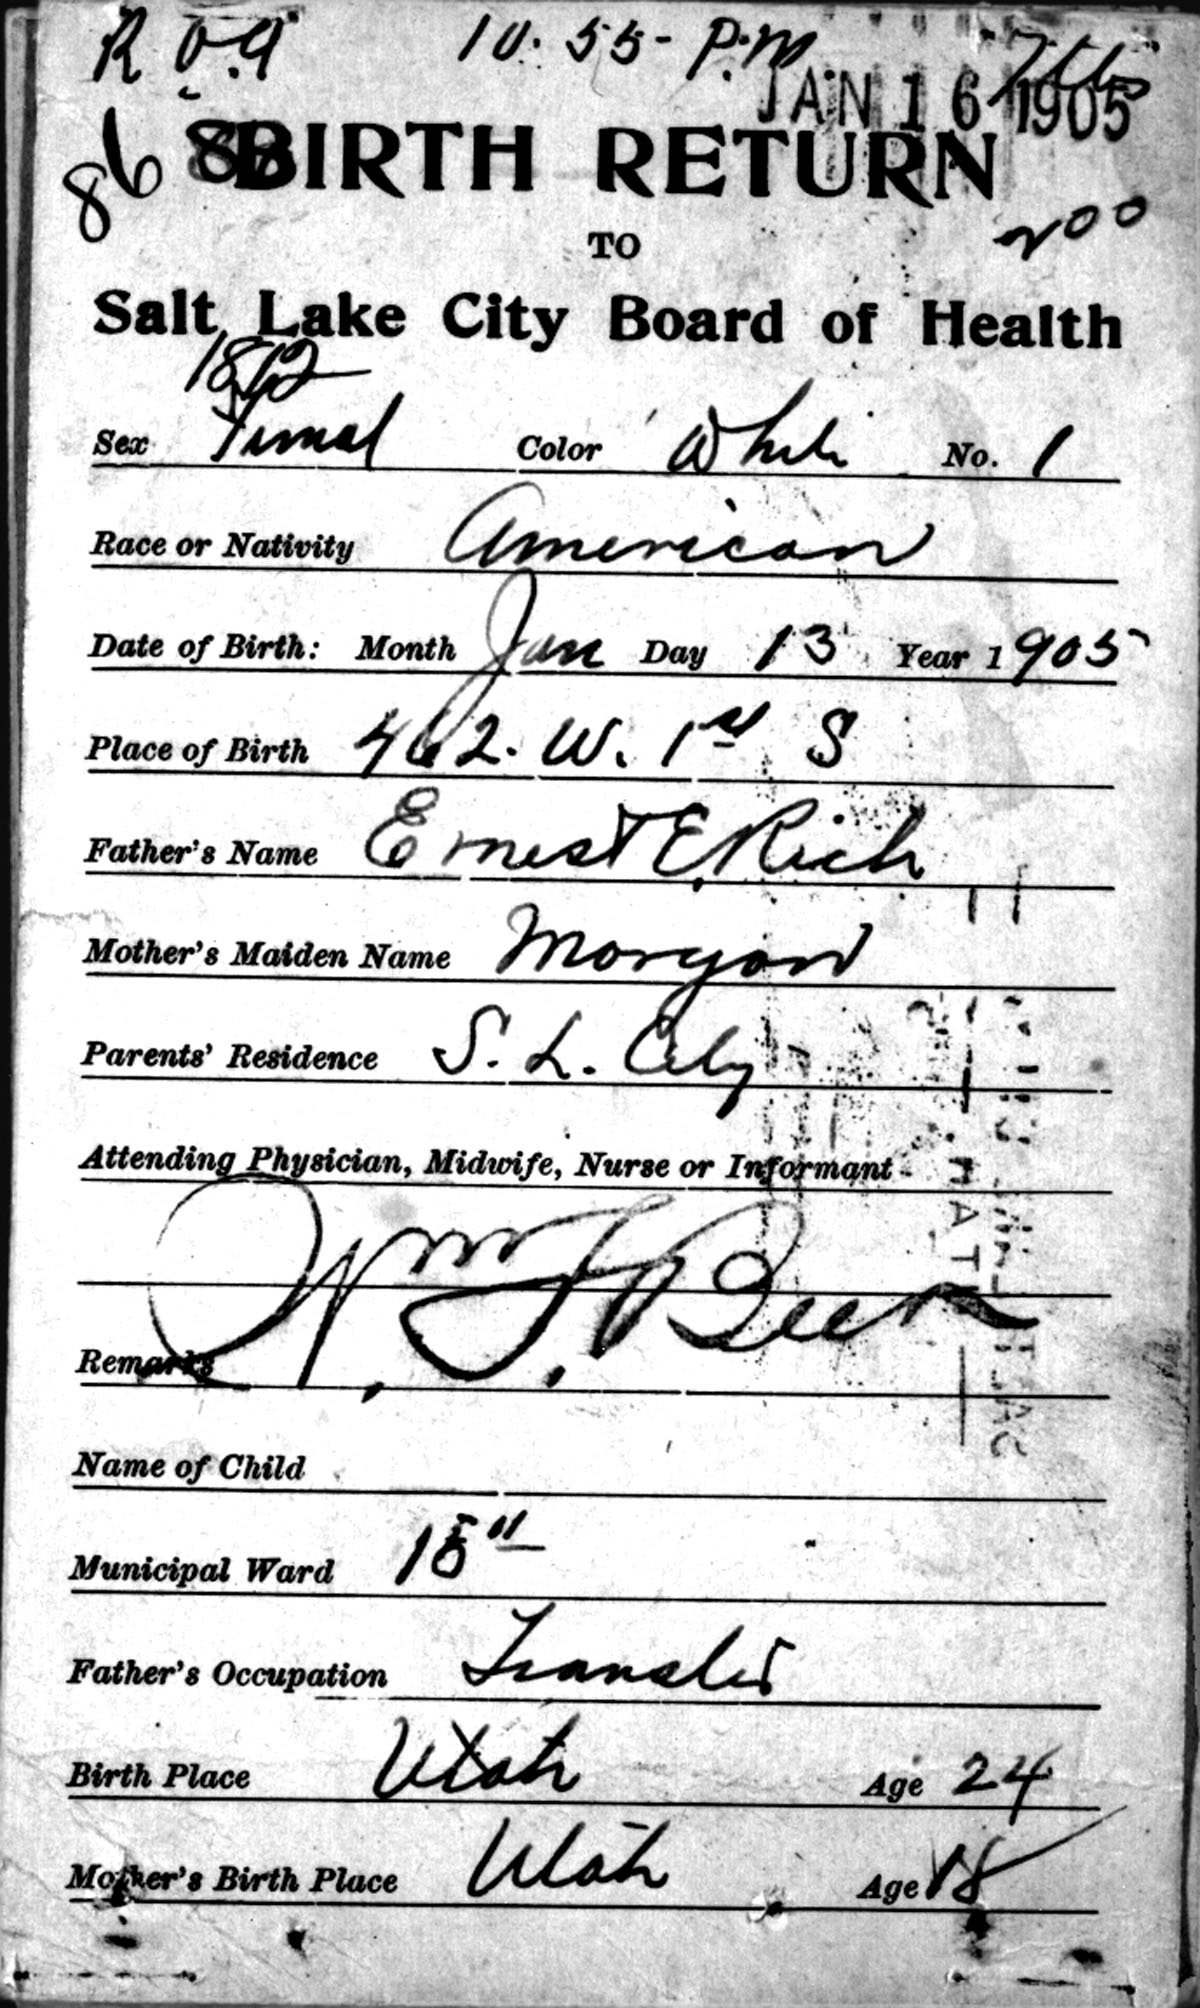 10.55 P.M
JAN 16 1905
86 BIRTH RETURN
200
TO
Salt Lake City Board of Health
Sex Femal Color White No. 1
Race or Nativity American
Date of Birth: Month Jan Day 13 Year 1905
Place of Birth 462. W. 1st S
Father's Name Ernest E. Rich
Mother's Maiden Name Morgan
Parents' Residence S. L. City
Attending Physician, Midwife, Nurse or Informant
Wm. F. Beer
Remarks
Name of Child
Municipal Ward 15"
Father's Occupation
Birth Place Utah Age 24
Mother's Birth Place Utah Age 18